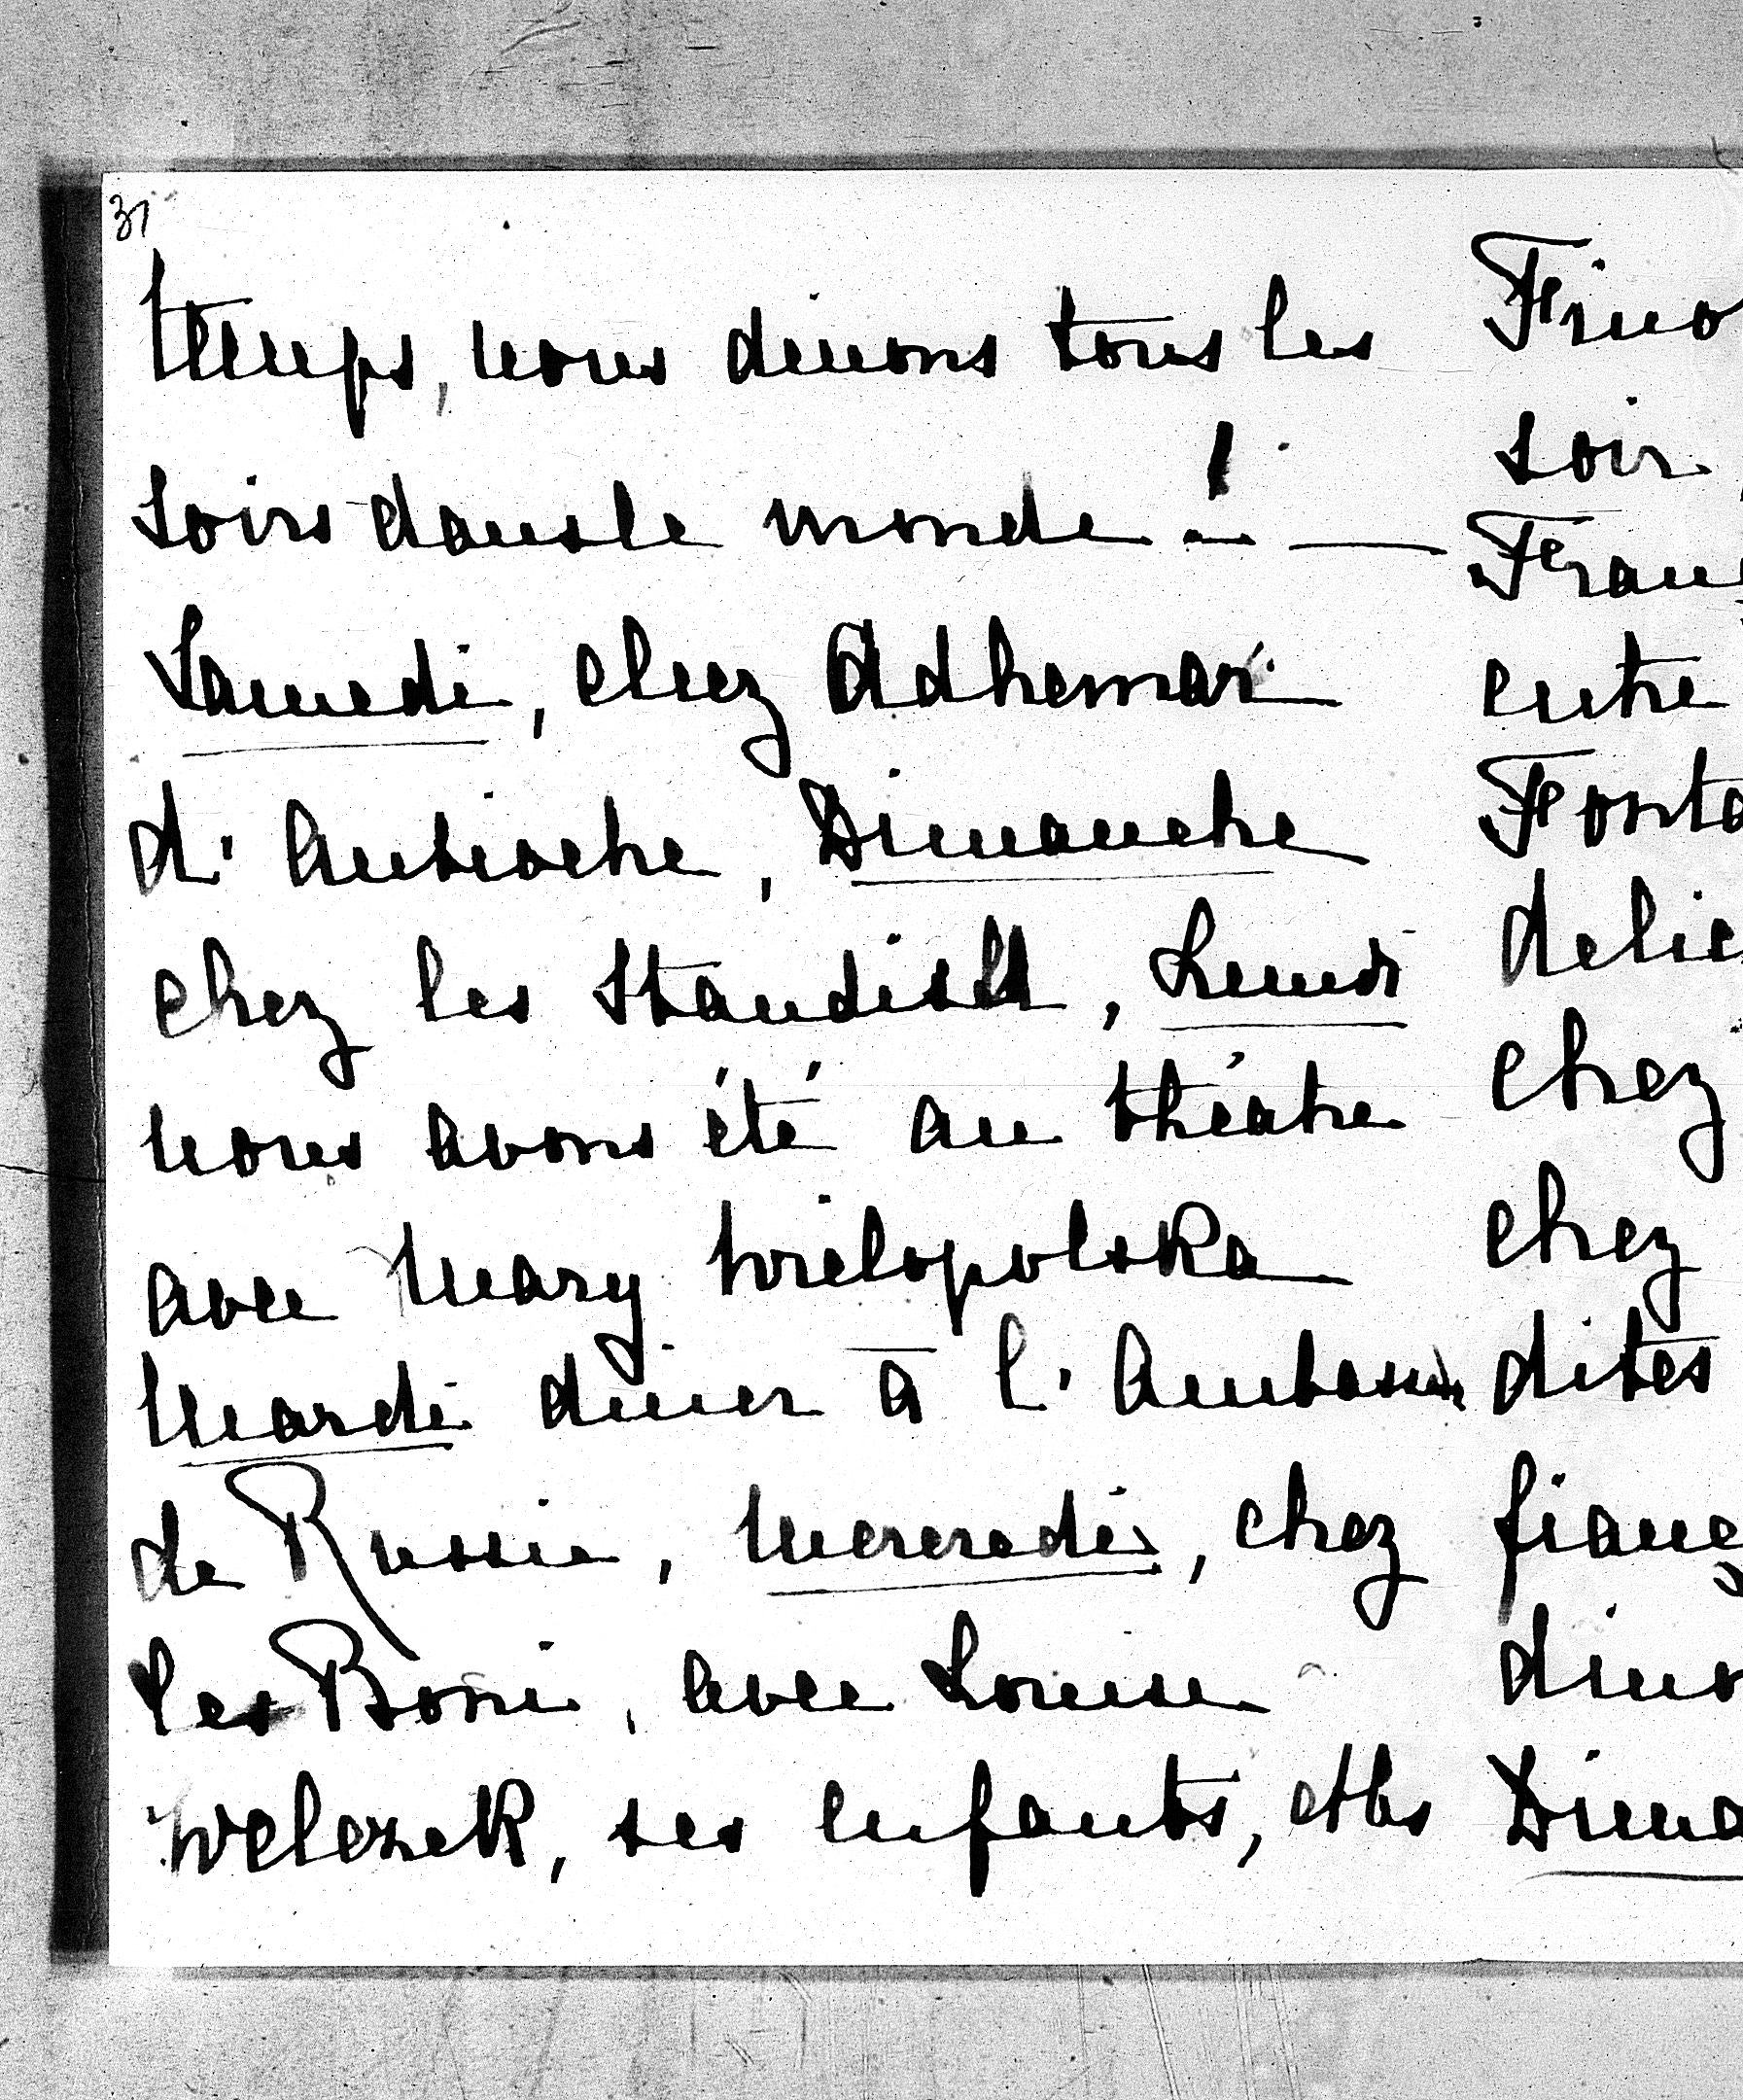 31
temps, nous dinons tous les
soirs dans le monde ! —
Samedi, chez Adhemar
d'Antioche, Dimanche
chez les Standish, Lundi
nous avons été au théatre
avec Mary Wielopolska
Mardi diner à l'Ambassade
de Russie, Mercredi, chez
les Boni, avec Louise
Welczek, ses enfants, et les
soir,
entre
chez
chez
dites